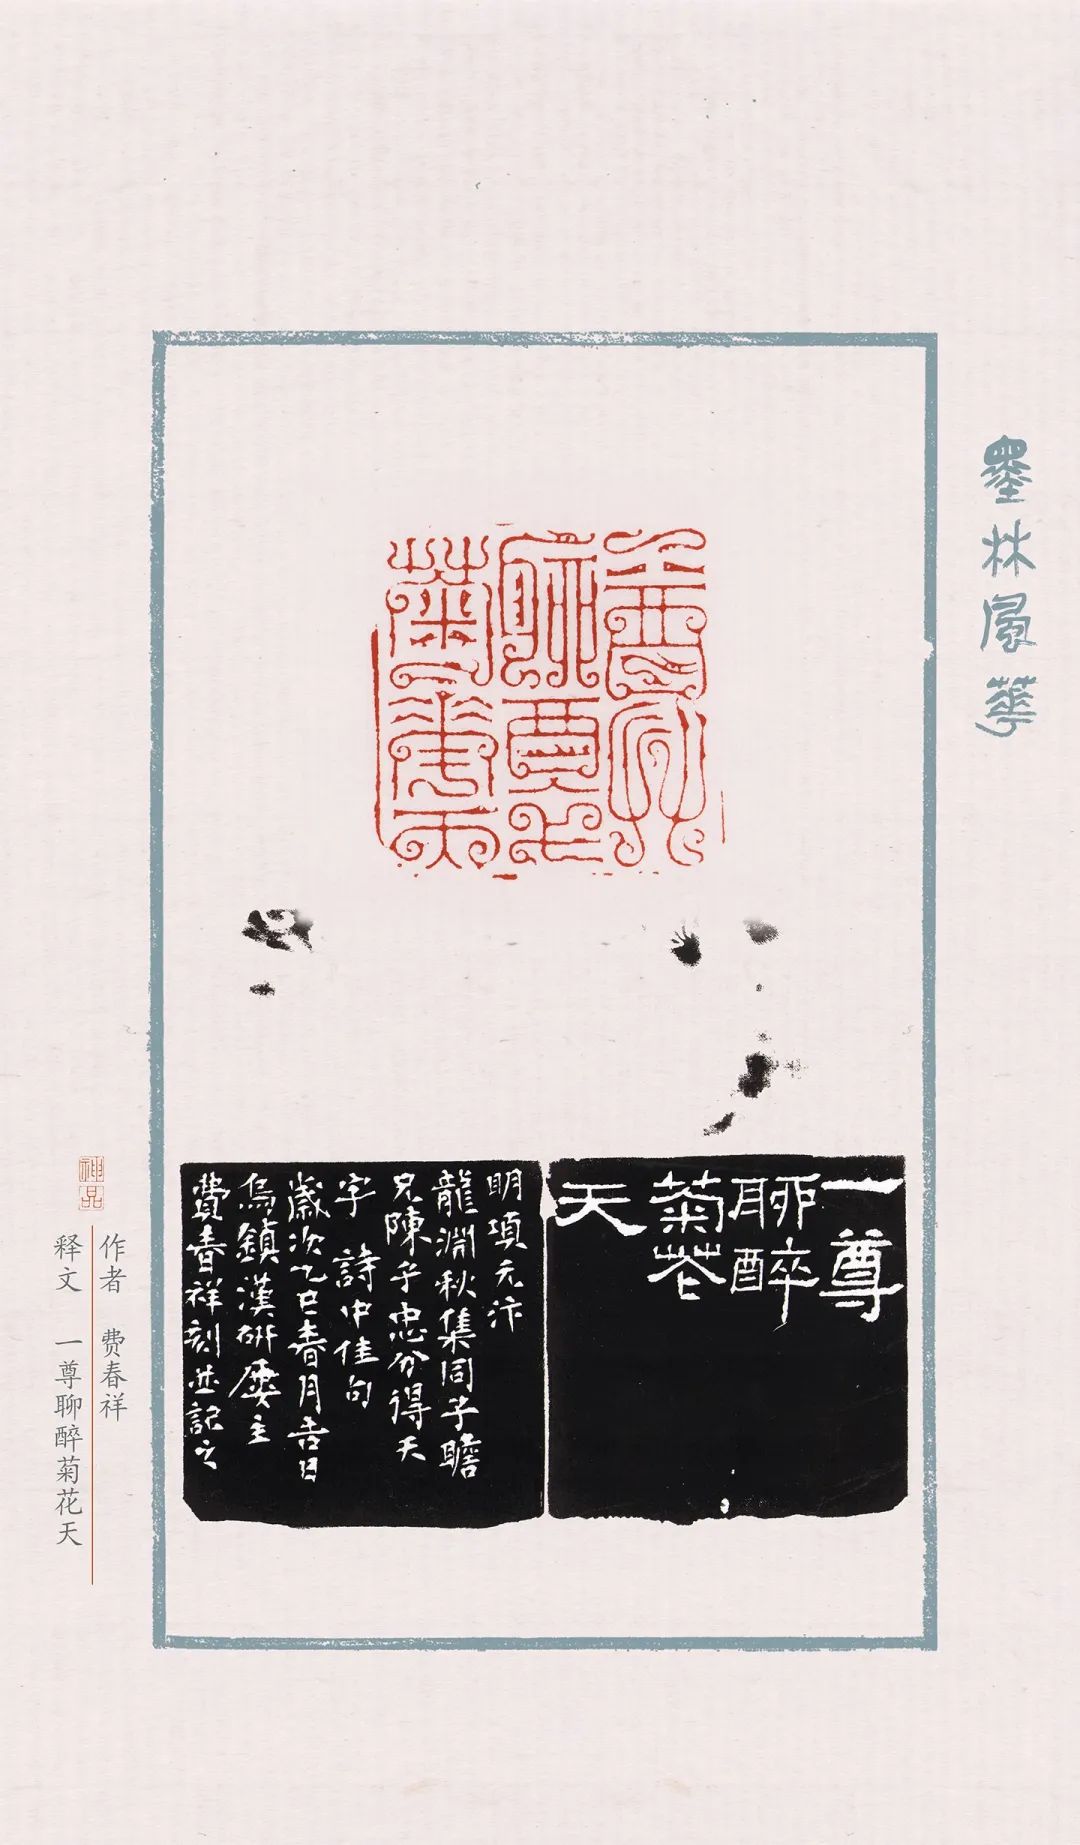 墨林風華
一尊
聊醉
菊花
天
一尊
聊醉
菊花
天
明項元汴
龍淵秋集同子瞻
兄陳子忠分得天
字 詩中佳句
歲次乙巳春月吉日
烏鎮漢研屢主
費春祥刻並記之
神品
作者 费春祥
释文 一尊聊醉菊花天